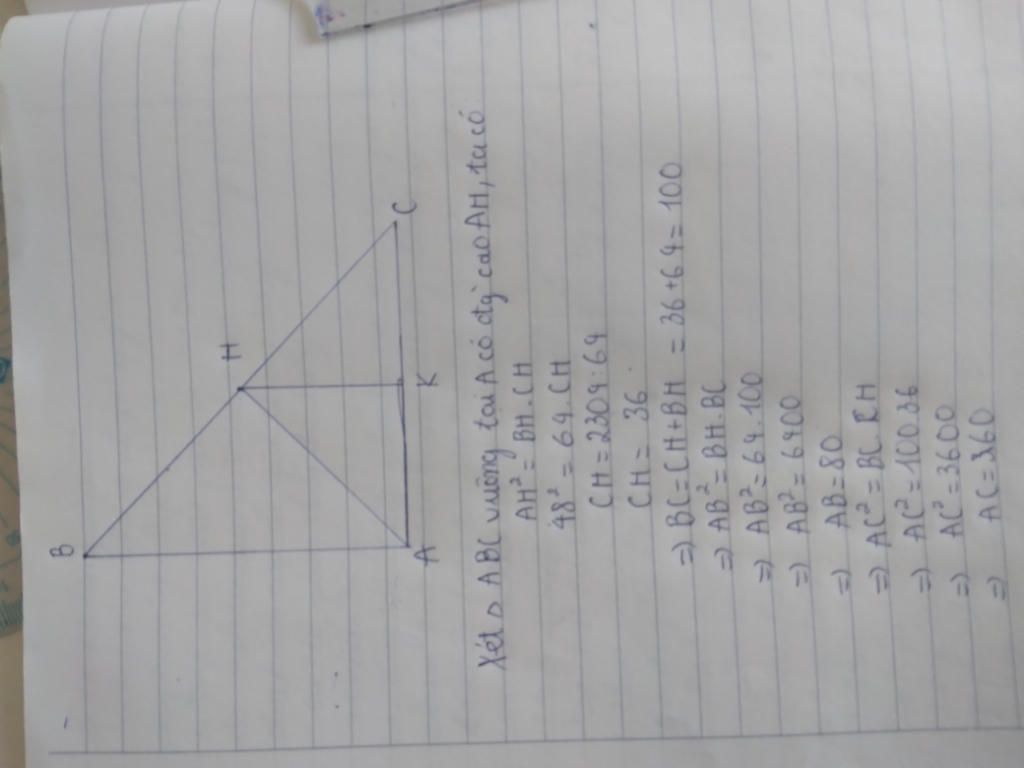 B
H
A
K
C
Xét △ ABC vuông tại A có đg cao AH, ta có
AH² = BH.CH
48² = 64.CH
CH = 2304:64
CH = 36
=) BC = CH+BH = 36+64 = 100
=) AB² = BH.BC
=) AB² = 64.100
=) AB² = 6400
=) AB = 80
=) AC² = BC.CH
=) AC² = 100.36
=) AC² = 3600
=) AC = 360